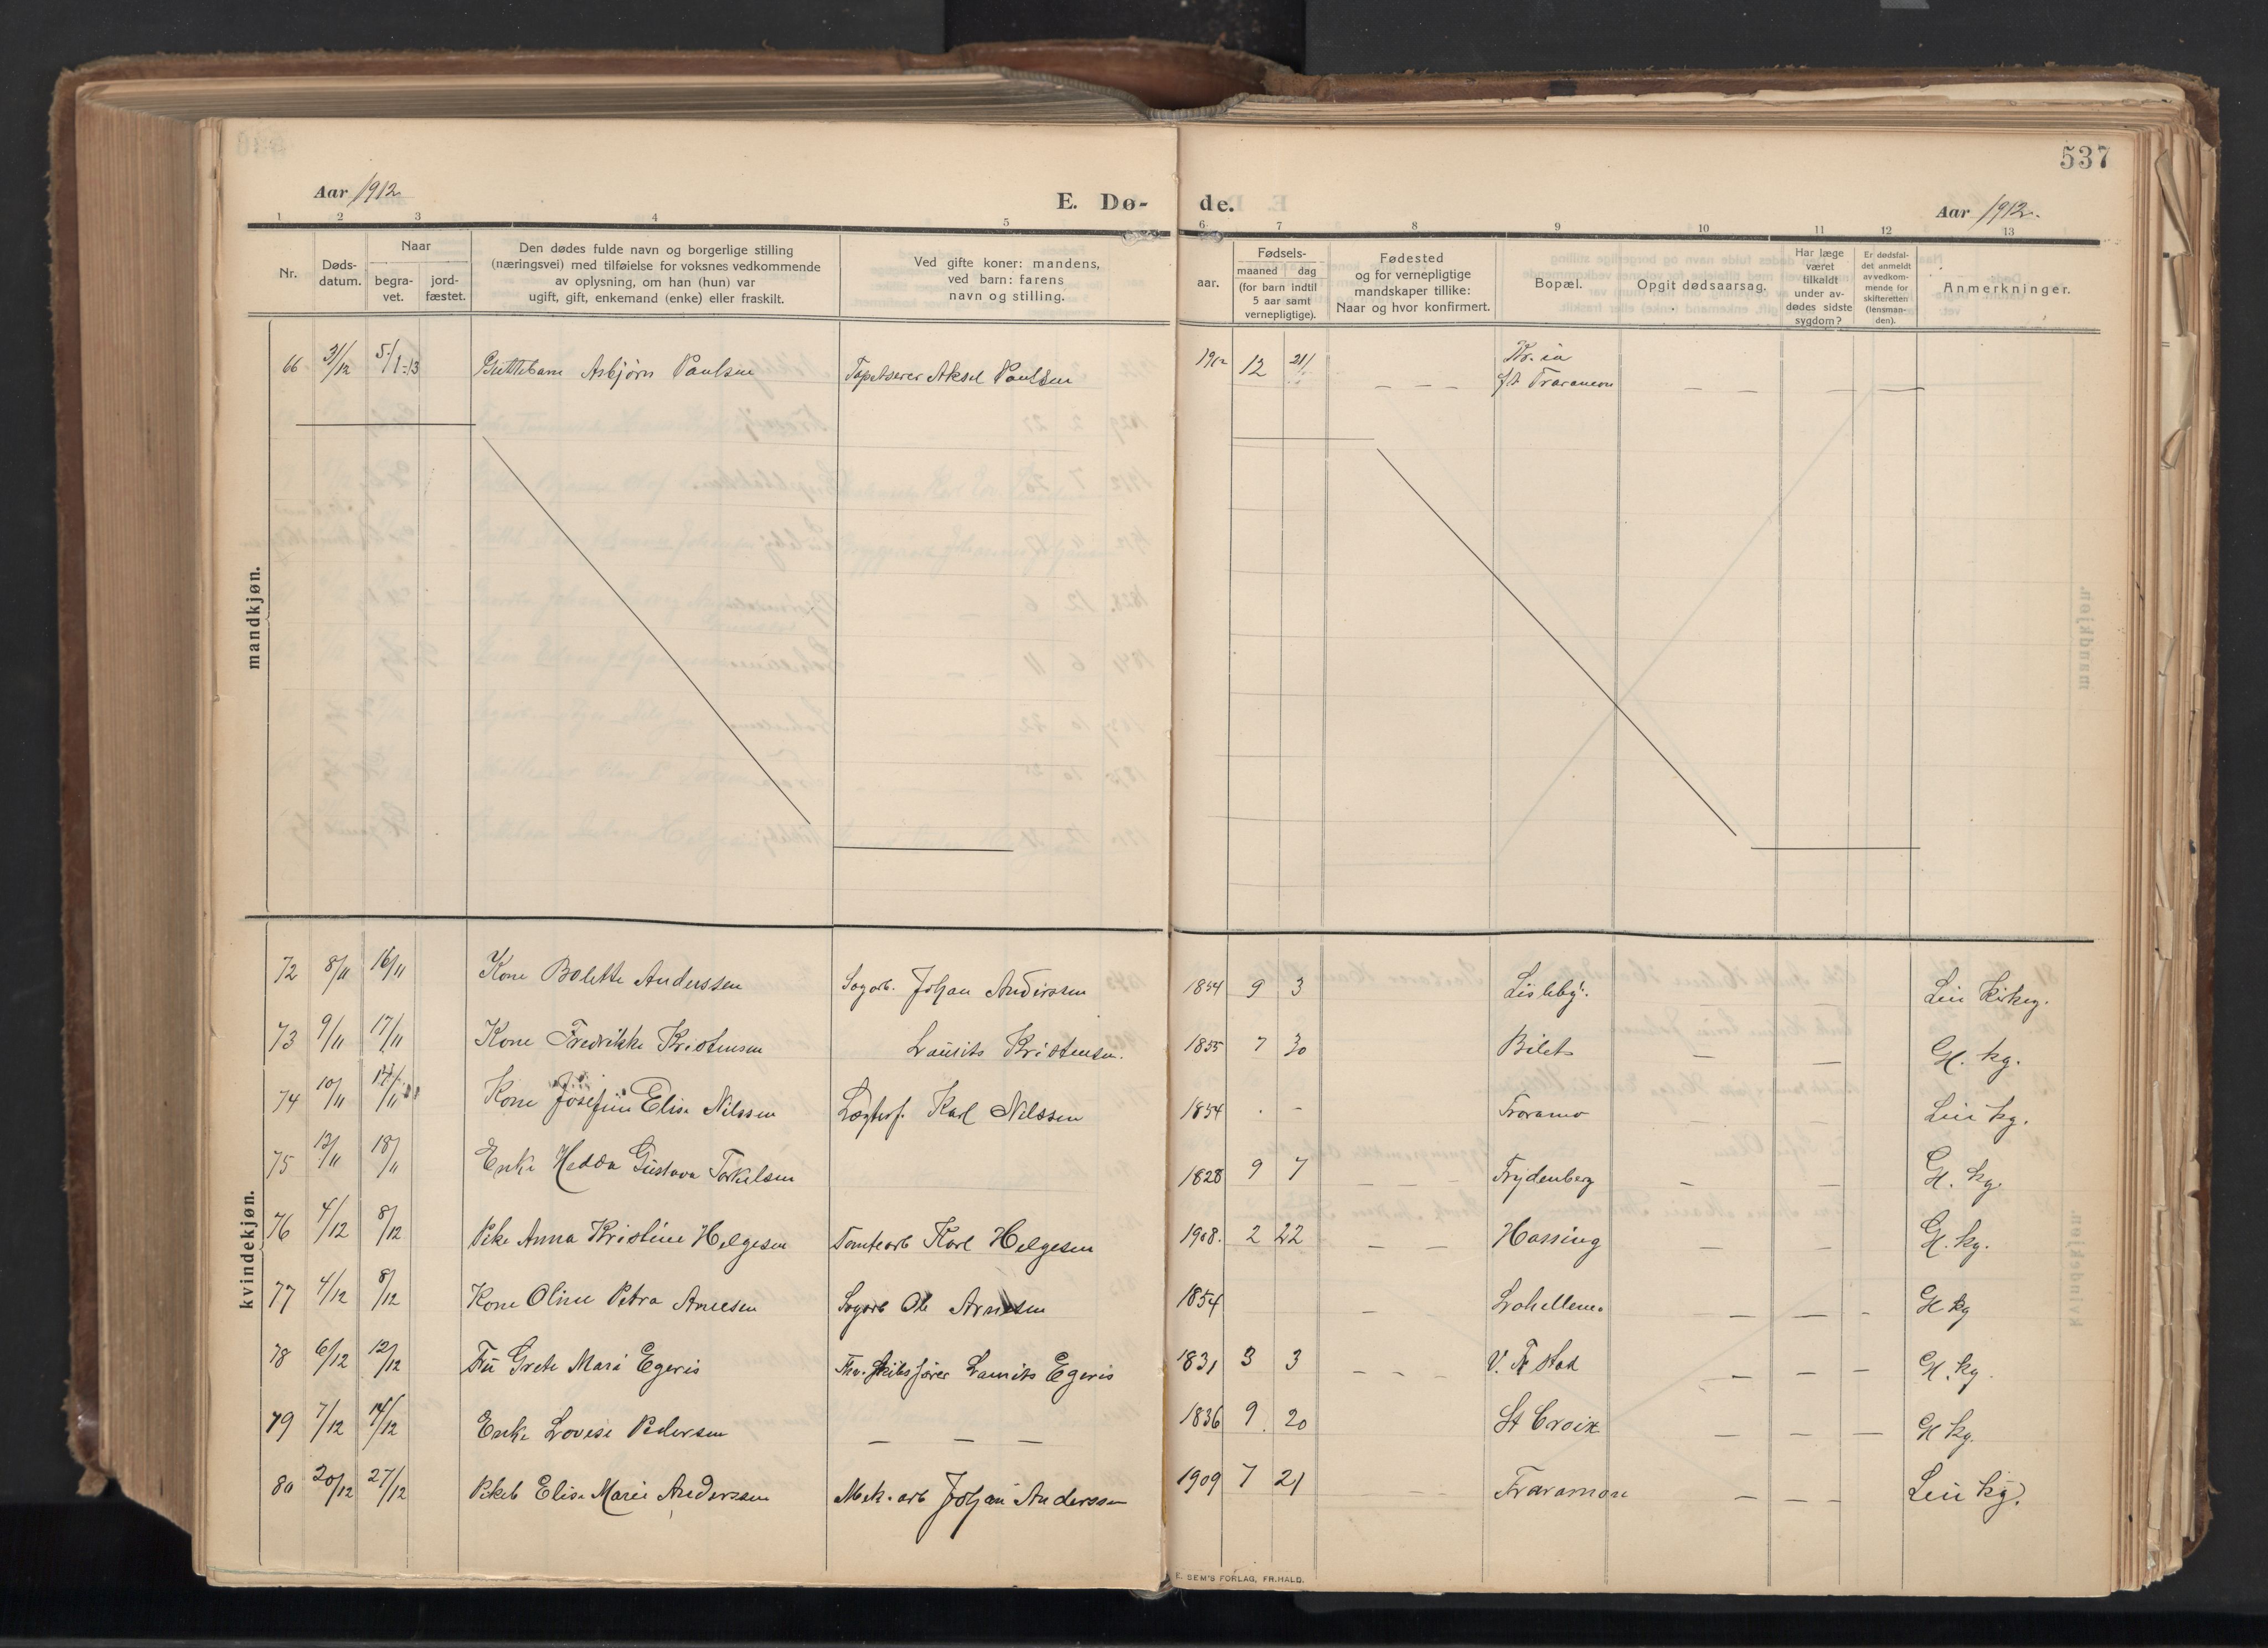 537
Aar 1912.
E. Dø-
de.
Aar 1912.
1 2 3 4 5 6 7 8 9 10 11 12 13
Nr.
Døds-
datum.
Naar
begra-
vet.
jord-
fæstet.
Den dødes fulde navn og borgerlige stilling
(næringsvei) med tilføielse for voksnes vedkommende
av oplysning, om han (hun) var
ugift, gift, enkemand (enke) eller fraskilt.
Ved gifte koner: mandens,
ved barn: farens
navn og stilling.
aar.
Fødsels-
maaned dag
(for barn indtil
5 aar samt
vernepligtige).
Fødested
og for vernepligtige
mandskaper tillike:
Naar og hvor konfirmert.
Bopæl.
Opgit dødsaarsag.
Har læge
været
tilkaldt
under av-
dødes sidste
sygdom?
Er dødsfal-
det anmeldt
av vedkom-
mende for
skifteretten
(lensman-
den).
Anmerkninger.
mandkjøn.
66 31/12 5/1-13 Guttebarn Asbjørn Paulsen Tapetserer Aksel Paulsen 1912 12 21/ — — — Kr.ia
f.t. Traraneon — — — —
kvindekjøn.
72 8/11 16/11 Kone Bolette Anderssen Sagarb. Johan Anderssen 1844 9 3 Lisleby. Leie Kirkeg.
73 9/11 17/11 Kone Fredrikke Kristensen Laurits Kristensen. 1855 7 30 Bilet — — G. kg.
74 10/11 17/11 Kone Josefine Elise Nilssen Lægterf. Karl Nilssen 1854 . - Traramo Leie kg.
75 13/11 18/11 Enke Hedda Gustava Torkilsen 1828 9 7 — — — Frydenberg — — G. kg.
76 4/12 8/12 Pike Anna Kristine Helgesen Tomtearb Karl Helgesen 1908. 2 22 — — Hassing — — G. kg.
77 4/12 8/12 Kone Oline Petra Arnesen Sagarb Ole Arnesen 1854 — Lohellene — — - G kg
78 6/12 12/12 Fru Grete Marie Egeris Fhv. skibsfører Laurits Egeris 1831 3 3 — - - V. Fr.stad — — — G. kg.
79 7/12 14/12 Enke Lovise Pedersen — — — 1836 9. 20 St Croix — — — G kg.
80 20/12 27/12 Pikeb Elise Marie Anderssen Mek. arb Johan Anderssen 1909 7 21 Traramoen — — — Leie kg.
E. SEM'S FORLAG, FR.HALD.